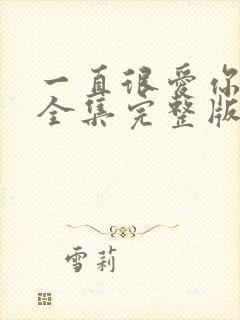 一直很爱你
全集完整版
雪莉